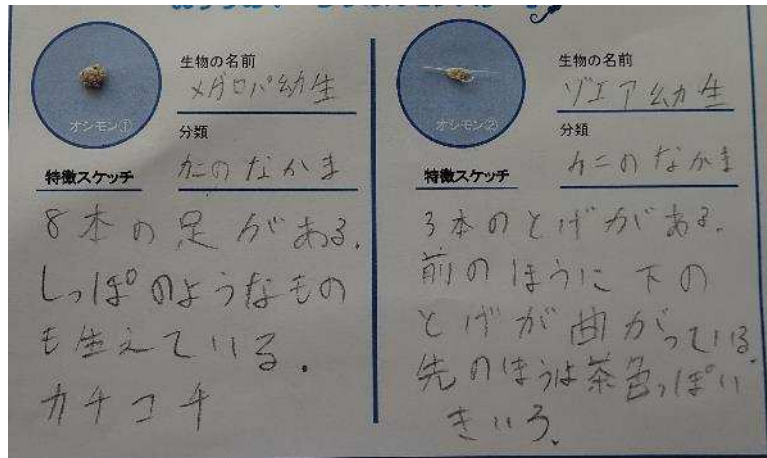 生物の名前
メガロパ幼生
オシモン①
分類
カニのなかま
特徴スケッチ
8本の足がある.
しっぽのようなもの
も生えている.
カチコチ
生物の名前
ゾエア幼生
オシモン②
分類
カニのなかま
特徴スケッチ
3本のとげがある.
前のほうに下の
とげが曲がっている.
先のほうは茶色っぽい
きいろ.